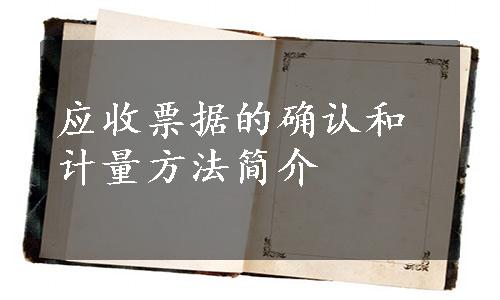 应收票据的确认和
计量方法简介